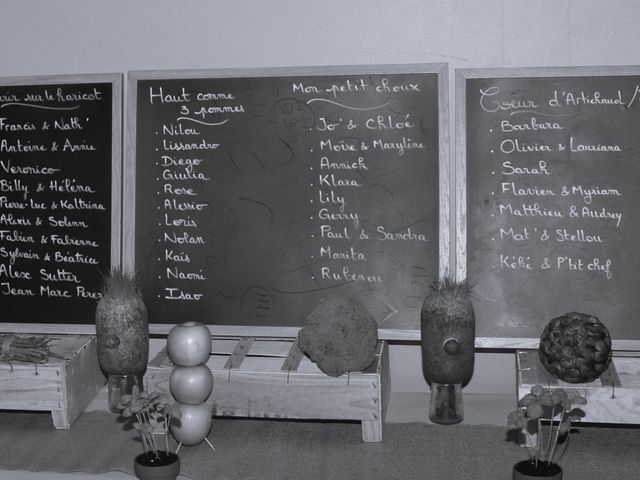 rir sur le haricot
Francis & Nath'
Antoine & Annie
Veronico
Billy & Héléna
Pierre-Luc & Kaltrina
Alexis & Solenn
Fabin & Fabienne
Sylvain & Béatrice
Alex Sutter
Jean Marc Perez
Haut comme
3 pommes
. Nilou
. Lissandro
. Diego
. Giulia
. Rose
. Alessio
. Loris
. Nolan
. Kaïs
. Naomi
. Isao
Mon petit choux
. Jo' & Chloé
. Moïse & Marylène
. Annick
. Klara
. Lily
. Gerry
. Paul & Sandra
. Marita
. Rubenou
Cœur d'Artichaud
. Barbara
. Olivier & Lauriana
. Sarah
. Flavien & Myriam
. Matthieu & Audrey
. Mat' & Stellou
. Kéké & P'tit chef